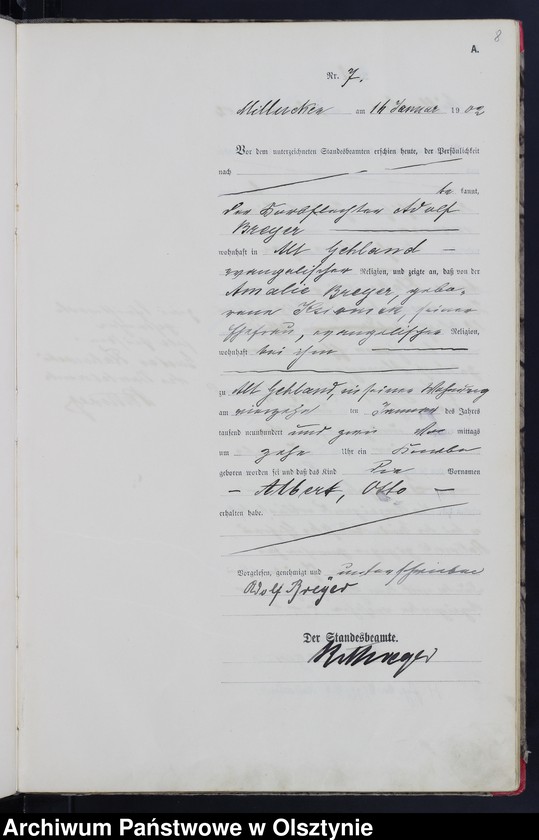 8
A.
Nr. 7.
am 16 Januar 1902
Vor dem unterzeichneten Standesbeamten erschien heute, der Persönlichkeit
nach
be kannt,
der Adolf
Breyer
wohnhaft in Alt Gehland
evangelischer Religion, und zeigte an, daß von der
Amalie Breyer, gebo-
rene seiner
Ehefrau, evangelischer Religion,
wohnhaft bei ihm
zu Alt Gehland, in seiner Wohnung
am vierzehn ten Januar des Jahres
tausend neunhundert und zwei Vor mittags
um zehn Uhr ein Knabe
geboren worden sei und daß das Kind die Vornamen
Albert, Otto
erhalten habe.
Vorgelesen, genehmigt und unterschrieben
Adolf Breyer
Der Standesbeamte.
Archiwum Państwowe w Olsztynie